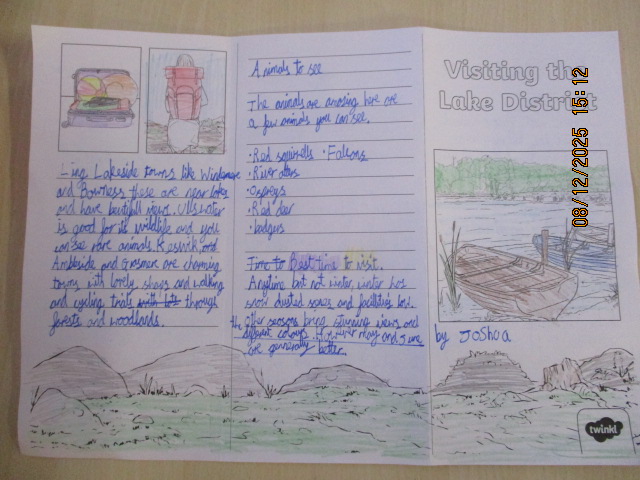 Lakeside towns like Windermere
and Bowness these are near lakes
and have beutifull views. Ullswater
is good for its wildlife and you
can see rare animals. Keswik and
Ambleside and Grasmere are charming
towns with lovely shops and walking
and cycling trials through
forests and woodlands.
Animals to see
The animals are amazing here are
a few animals you can see.
·Red squirells ·Falcons
·River otters
·Ospreys
·Red deer
·badgers
Time to Best time to visit.
Anytime but not winter, winter has
snow dusted and facilities
the other seasons bring stunning views and
different colours. However may and June
are generally better.
Visiting the
Lake District
by Joshua
twinkl
08/12/2025 15:12